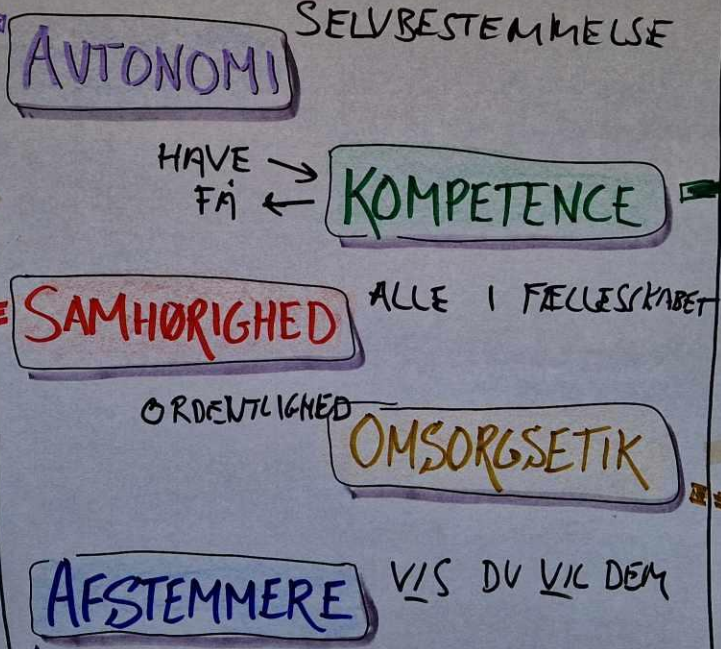 SELVBESTEMMELSE
AUTONOMI
HAVE →
FÅ ←
KOMPETENCE
SAMHØRIGHED
ALLE I FÆLLESSKABET
ORDENTLIGHED
OMSORGSETIK
AFSTEMMERE
VIS DU VIL DEM